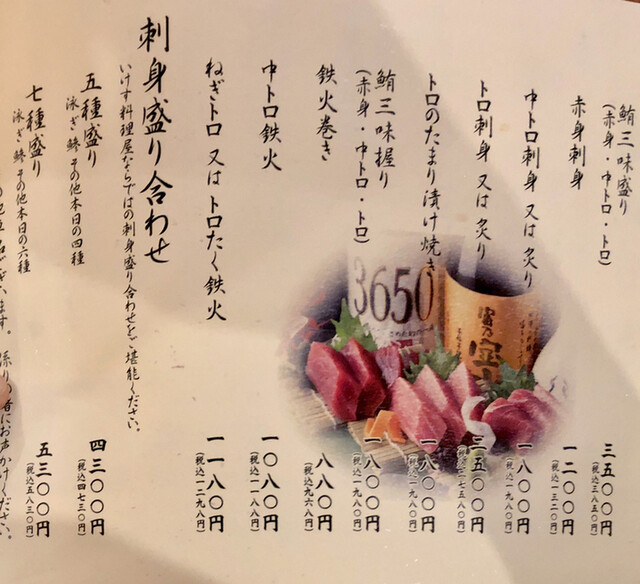 鮪三味盛り
(赤身・中トロ・トロ)
三五〇〇円
(税込三八五〇円)
赤身刺身
一二〇〇円
(税込一三二〇円)
中トロ刺身 又は 炙り
一八〇〇円
(税込一九八〇円)
トロ刺身 又は 炙り
二五〇〇円
(税込二七五〇円)
トロのたまり漬け焼き
一八〇〇円
(税込一九八〇円)
鮪三味握り
(赤身・中トロ・トロ)
一八〇〇円
(税込一九八〇円)
鉄火巻き
八八〇円
(税込九六八円)
中トロ鉄火
一〇八〇円
(税込一一八八円)
ねぎトロ 又は トロたく鉄火
一一八〇円
(税込一二九八円)
刺身盛り合わせ
いけす料理屋ならではの刺身盛り合わせをご堪能ください。
五種盛り
泳ぎ鯵 その他本日の四種
四三〇〇円
(税込四七三〇円)
七種盛り
泳ぎ鯵 その他本日の六種
五三〇〇円
(税込五八三〇円)
ございます。 係りの者にお声がけください。
3650